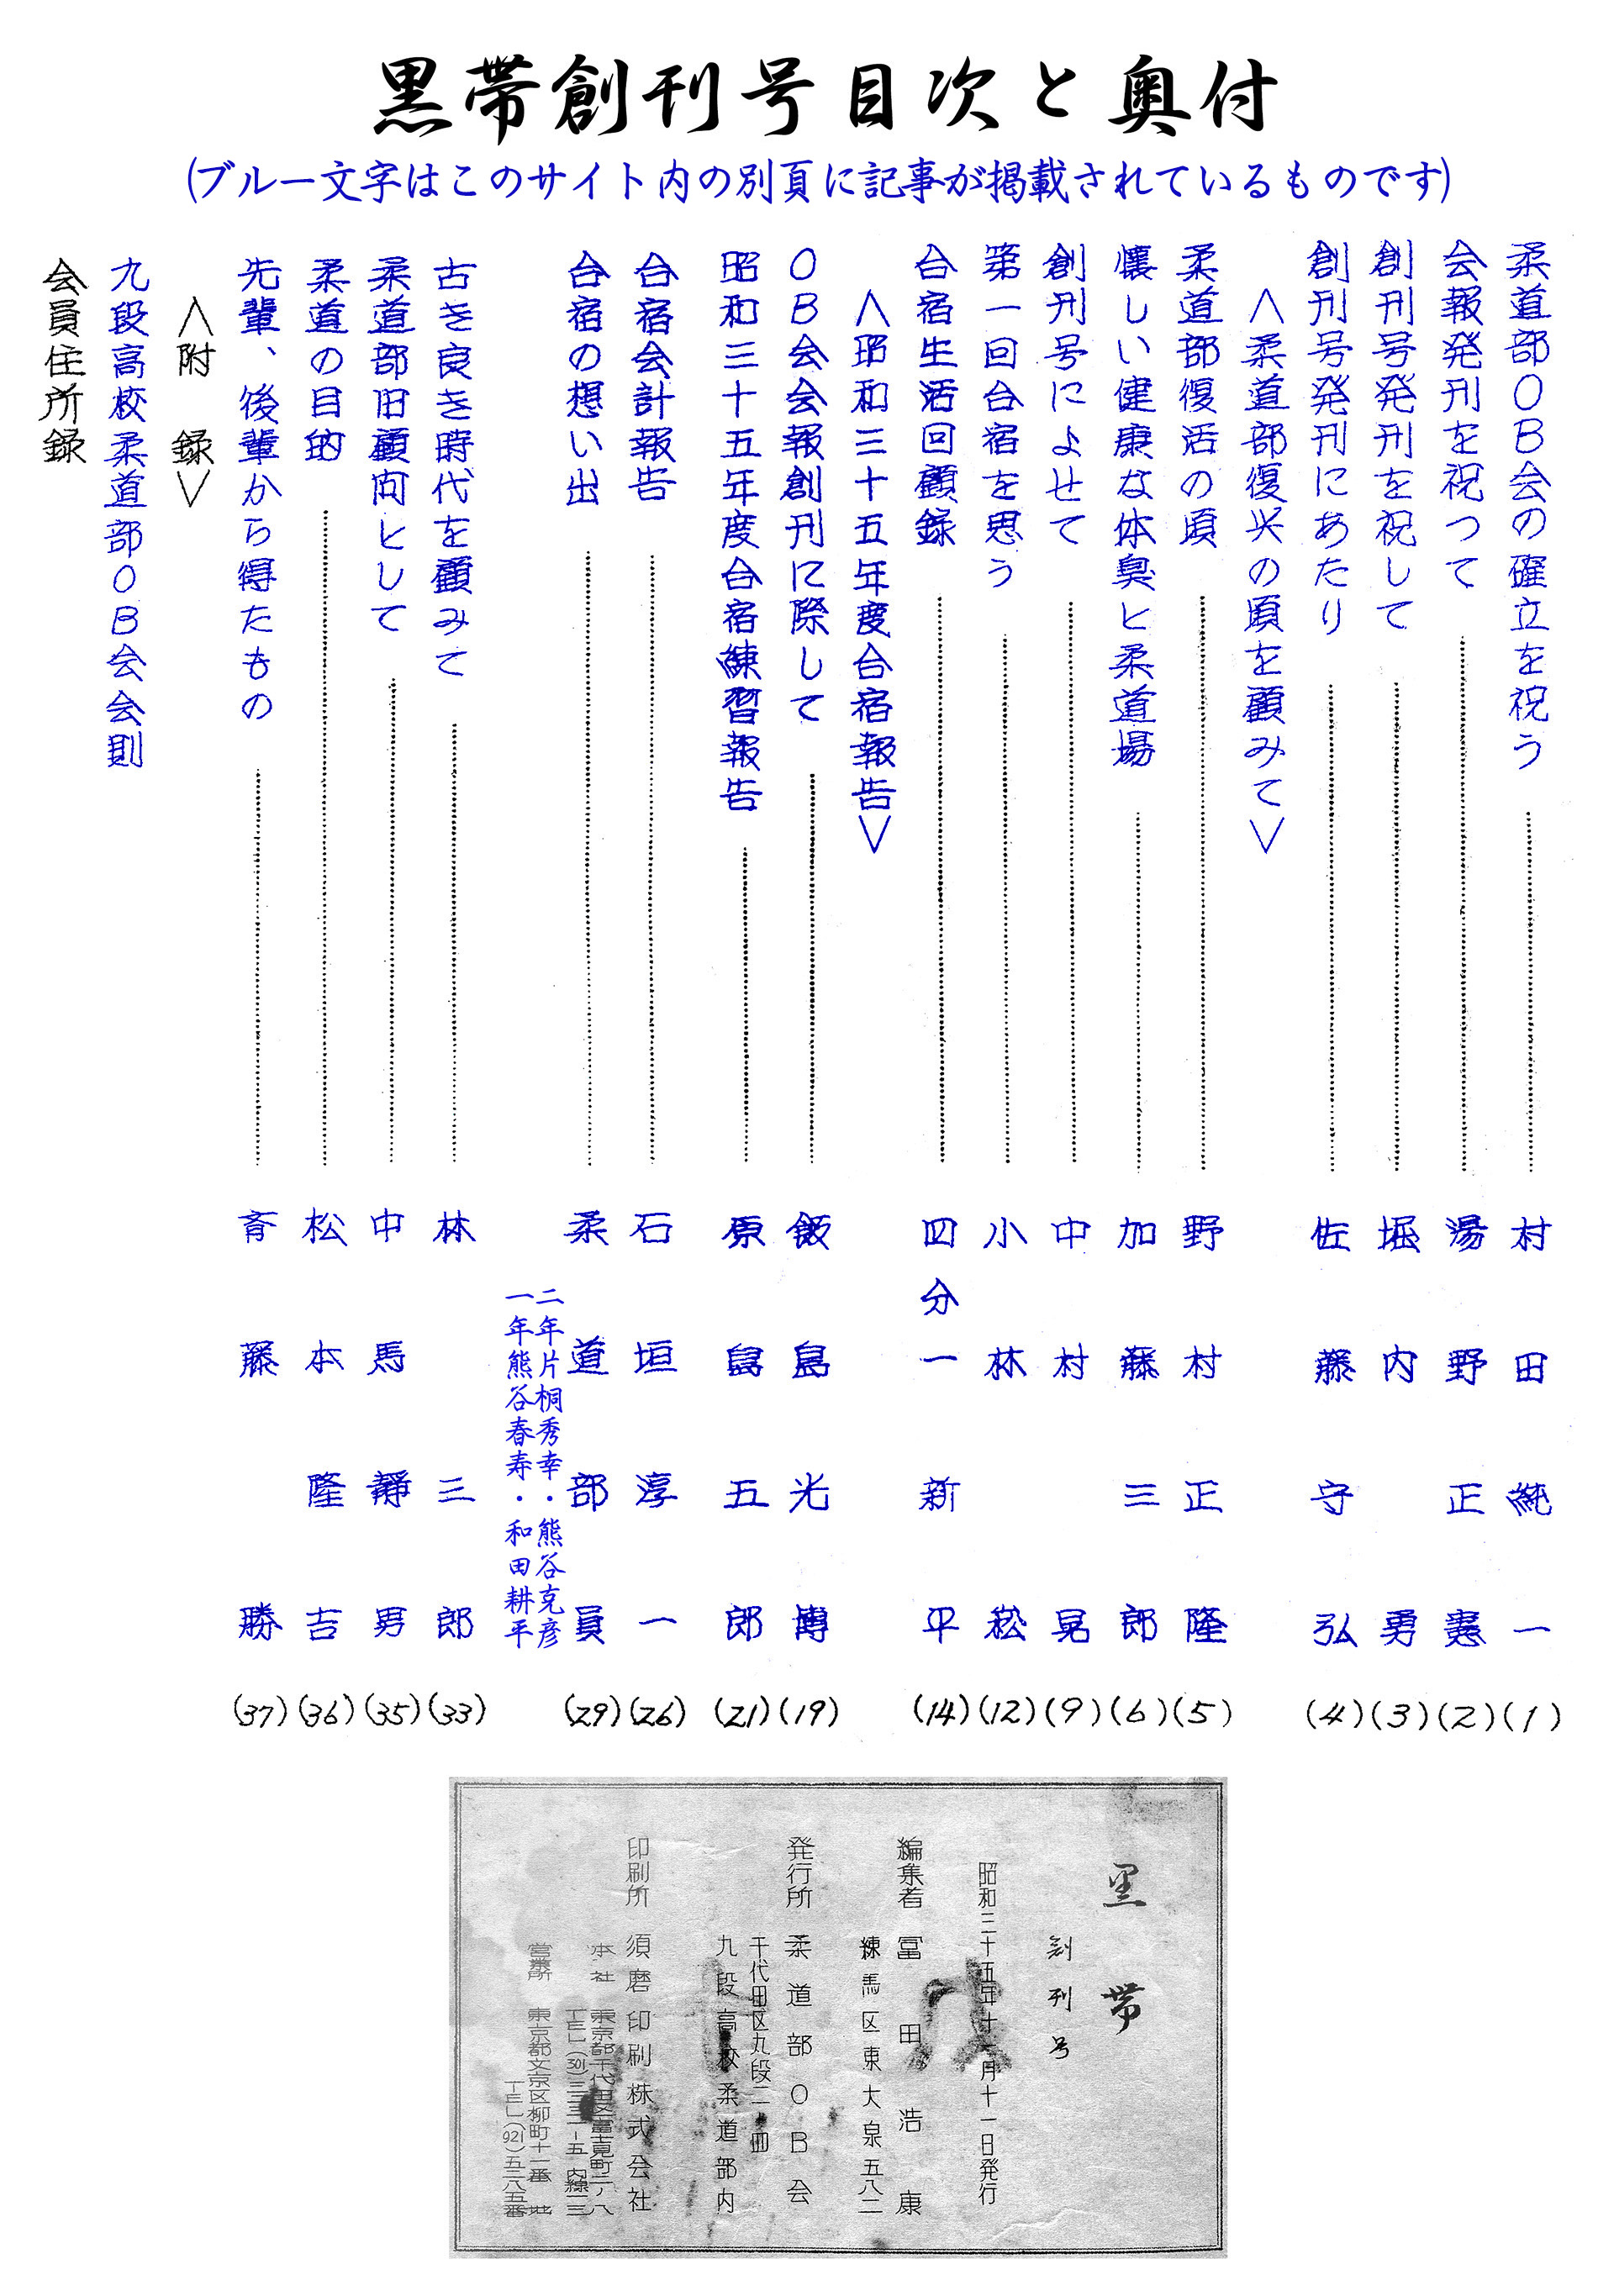 黒帯創刊号目次と奥付
(ブルー文字はこのサイト内の別頁に記事が掲載されているものです)
柔道部OB会の確立を祝う 村田純一 (1)
会報発刊を祝つて 湯野正憲 (2)
創刊号発刊を祝して 堀内勇 (3)
創刊号発刊にあたり 佐藤守弘 (4)
<柔道部復興の頃を顧みて>
柔道部復活の頃 野村正隆 (5)
懐しい健康な体臭と柔道場 加藤三郎 (6)
創刊号によせて 中村晃 (9)
第一回合宿を思う 小林松 (12)
合宿生活回顧録 四分一新平 (14)
<昭和三十五年度合宿報告>
OB会会報創刊に際して 飯島光博 (19)
昭和三十五年度合宿練習報告 原島五郎 (21)
合宿会計報告 石垣淳一 (26)
合宿の想い出 柔道部員 (29)
二年片桐秀幸・熊谷克彦
一年熊谷春寿・和田耕平
古き良き時代を顧みて 林三郎 (33)
柔道部旧顧問として 中馬靜男 (35)
柔道の目的 松本隆吉 (36)
先輩、後輩から得たもの 斉藤勝 (37)
<附 録>
九段高校柔道部OB会会則
会員住所録
黒帯
創刊号
昭和三十五年十一月十一日発行
編集者 冨田浩康
練馬区東大泉五八二
発行所 柔道部OB会
千代田区九段二ノ四
九段高校柔道部内
印刷所 須磨印刷株式会社
本社 東京都千代田区富士見町二ノ八
TEL(301)三三三一-五 内線一三
営業所 東京都文京区柳町十二番地
TEL(921)五二八五番